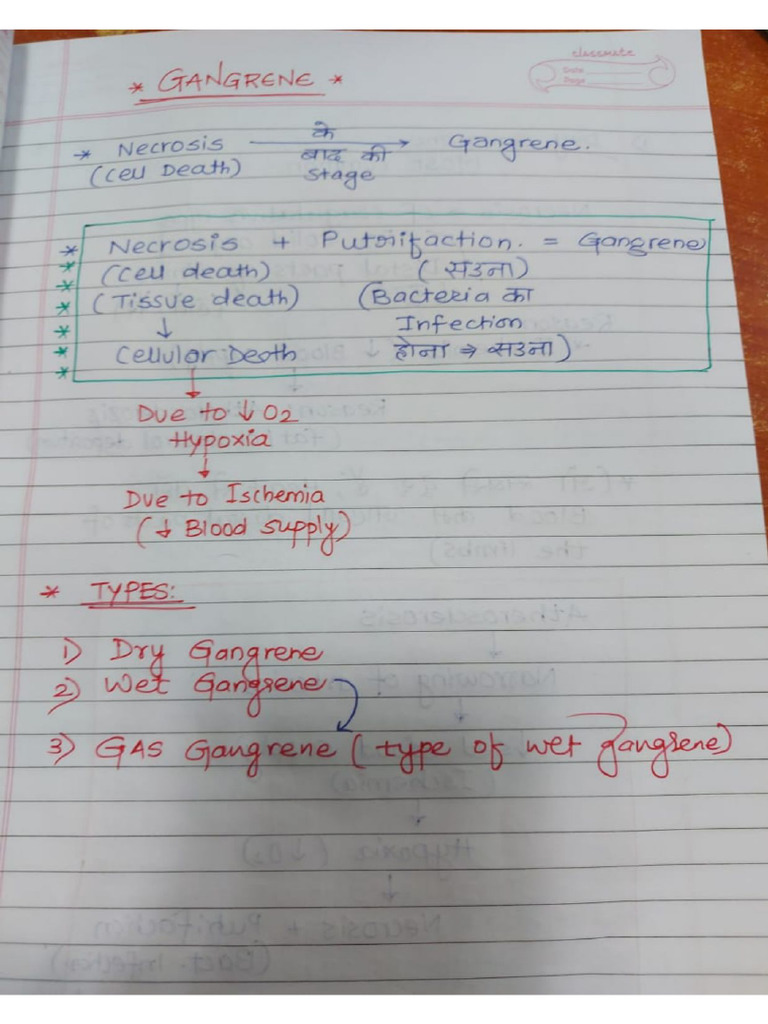 classmate
Date
Page
* GANGRENE *
* Necrosis के Gangrene.
(Cell Death) बाद की
stage
* Necrosis + Putorifaction. = Gangrene
* (Cell death) (सडना)
* (Tissue death) (Bacteria का
* ↓ Infection
* Cellular Death होना ⇒ सडना)
*
↓
Due to ↓ O2
Hypoxia
↓
Due to Ischemia
(↓ Blood supply)
* TYPES:
1) Dry Gangrene
2) Wet Gangrene
3) GAS Gangrene (type of wet gangrene)